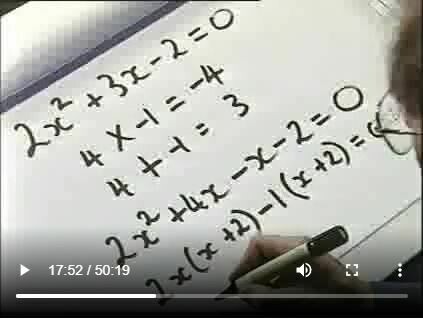 2x² + 3x - 2 = 0
4 x -1 = -4
4 + -1 = 3
2x² + 4x - x - 2 = 0
2x(x + 2) - 1(x + 2) =
17:52 / 50:19